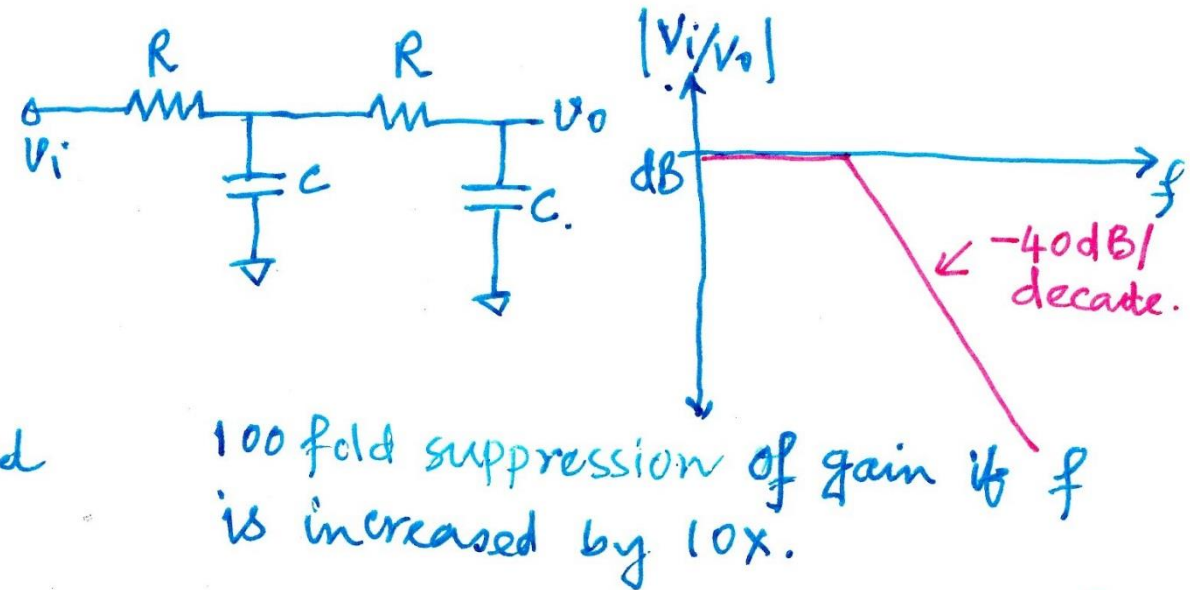 R
R
Vi
C
C.
vo
|Vi/Vo|
dB
f
-40dB/
decade.
d
100 fold suppression of gain if f
is increased by 10x.